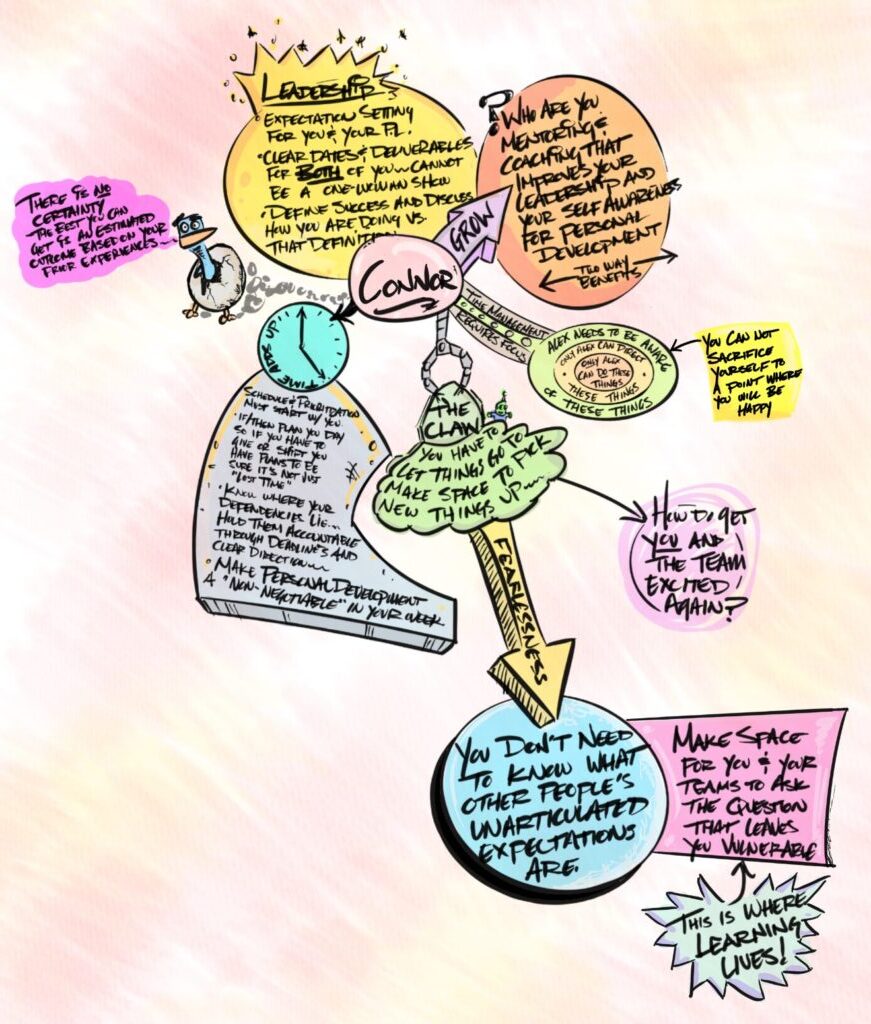 Leadership
Expectation Setting
for you & your P.L.
• Clear dates & deliverables
for both of you~ cannot
be a one-woman show
• Define success and discuss
how you are doing vs.
that definition
?
Who are you
mentoring &
coaching that
improves your
leadership and
your self awareness
for personal
development
Two way
benefits
There is no
certainty.
The best you can
get is an estimated
outcome based on your
prior experiences~
Grow
Connor
Time Adds Up
Time Management
Requires Focus
Alex needs to be aware
of these things
Only Alex can direct
these things
Only Alex
can do these
things
You can not
sacrifice
yourself to
a point where
you will be
happy
Schedule & Prioritization
must start w/ you
• If/Then plan you day
so if you have to
give or shift you
have plans to be
sure it's not just
"lost time"
• Know where your
dependencies lie...
Hold them accountable
through deadlines and
clear direction~
• Make Personal Development
a "non-
negotiable" in your week
The
Claw
You have to
let things go to
make space to pick
new things up~
How do get
you and
the team
excited
again?
Fearlessness
You don't need
to know what
other people's
unarticulated
expectations
are.
Make space
for you & your
teams to ask
the question
that leaves
you vulnerable
This is where
learning
lives!